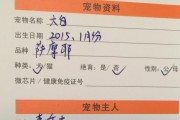 宠物资料
宠物名称 大白
出生年月 2015、1月份
品种 萨摩耶
种类:犬/猫 绝育:是/否 性别:公/母
微芯片/健康免疫证号
宠物主人